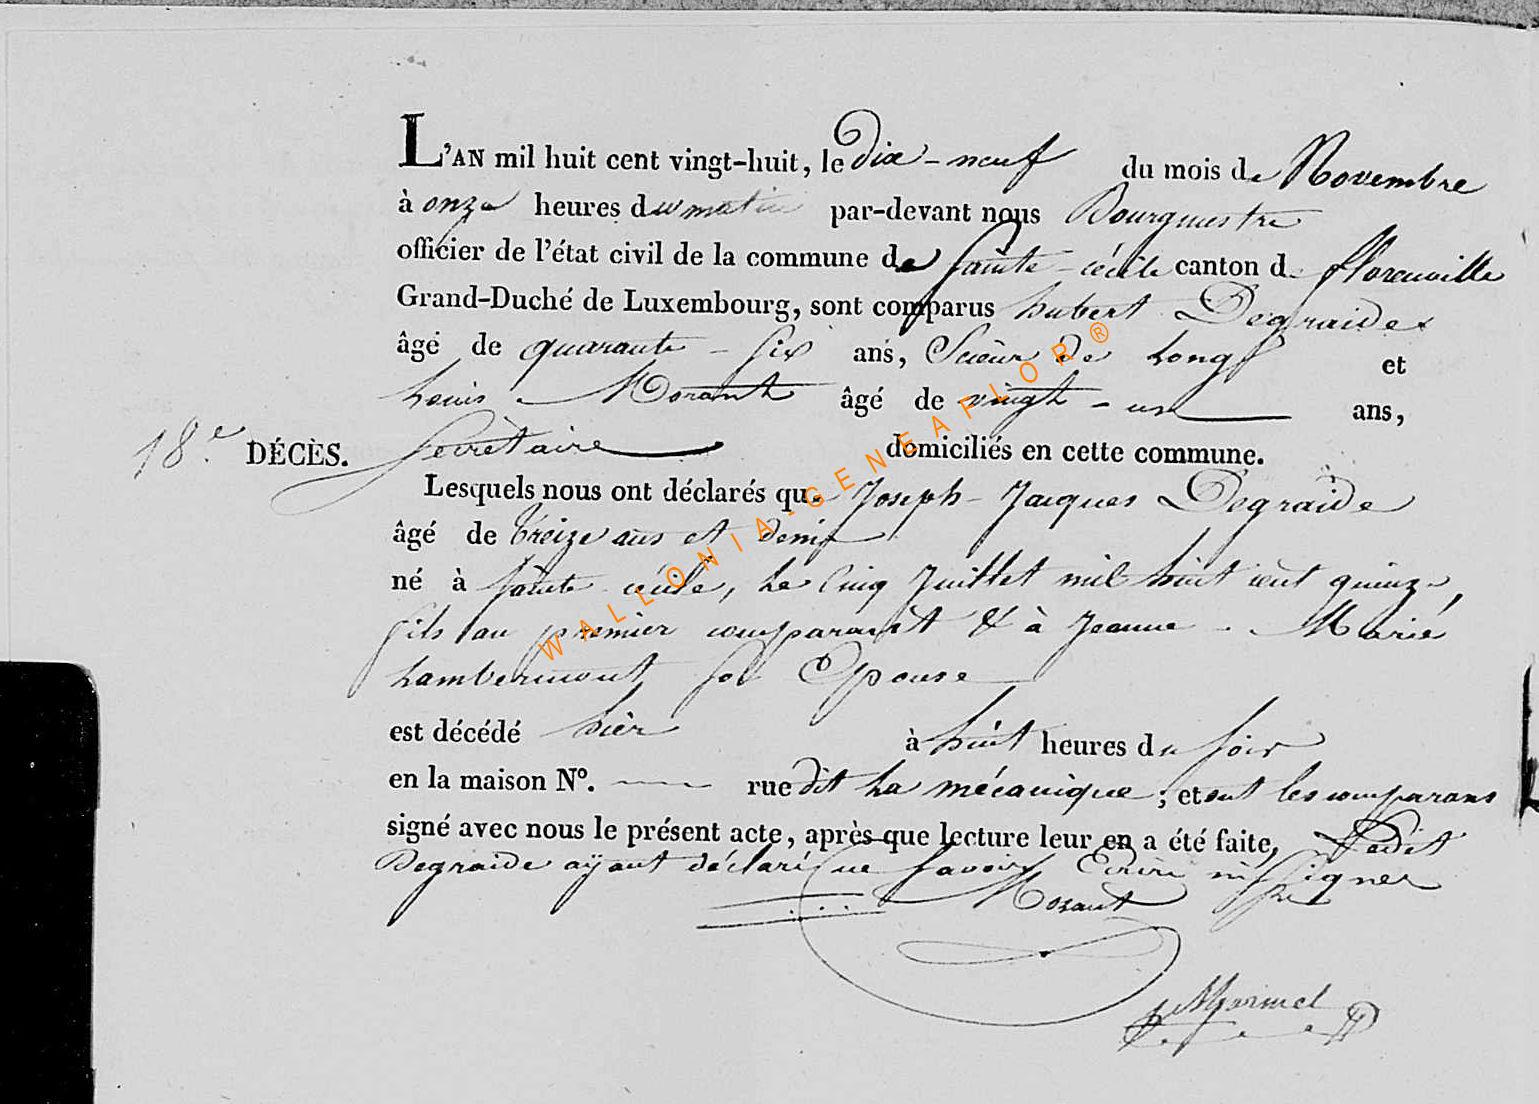 L'AN mil huit cent vingt-huit, le dix-neuf du mois de Novembre
à onze heures du matin par-devant nous Bourgmestre
officier de l'état civil de la commune de Sainte-cécile canton de florenville
Grand-Duché de Luxembourg, sont comparus hubert Degraide
âgé de quarante-six ans, Scieur de Long et
Louis Morant âgé de vingt-un ans,
18e DÉCÈS. Secrétaire domiciliés en cette commune.
Lesquels nous ont déclarés que Joseph-Jacques Degraide
âgé de treize ans et demi
né à Sainte cécile, Le cinq Juillet mil huit cent quinze,
fils au premier comparant & à Jeanne-Marie
Lambermont son Epouse
est décédé hier à huit heures du soir
en la maison N°. rue dit La mécanique, et ont les comparans
signé avec nous le présent acte, après que lecture leur en a été faite, Ledit
Degraide ayant déclaré ne savoir Ecrire ni signer
Morant
WALLONIA-GENEAFLOR®